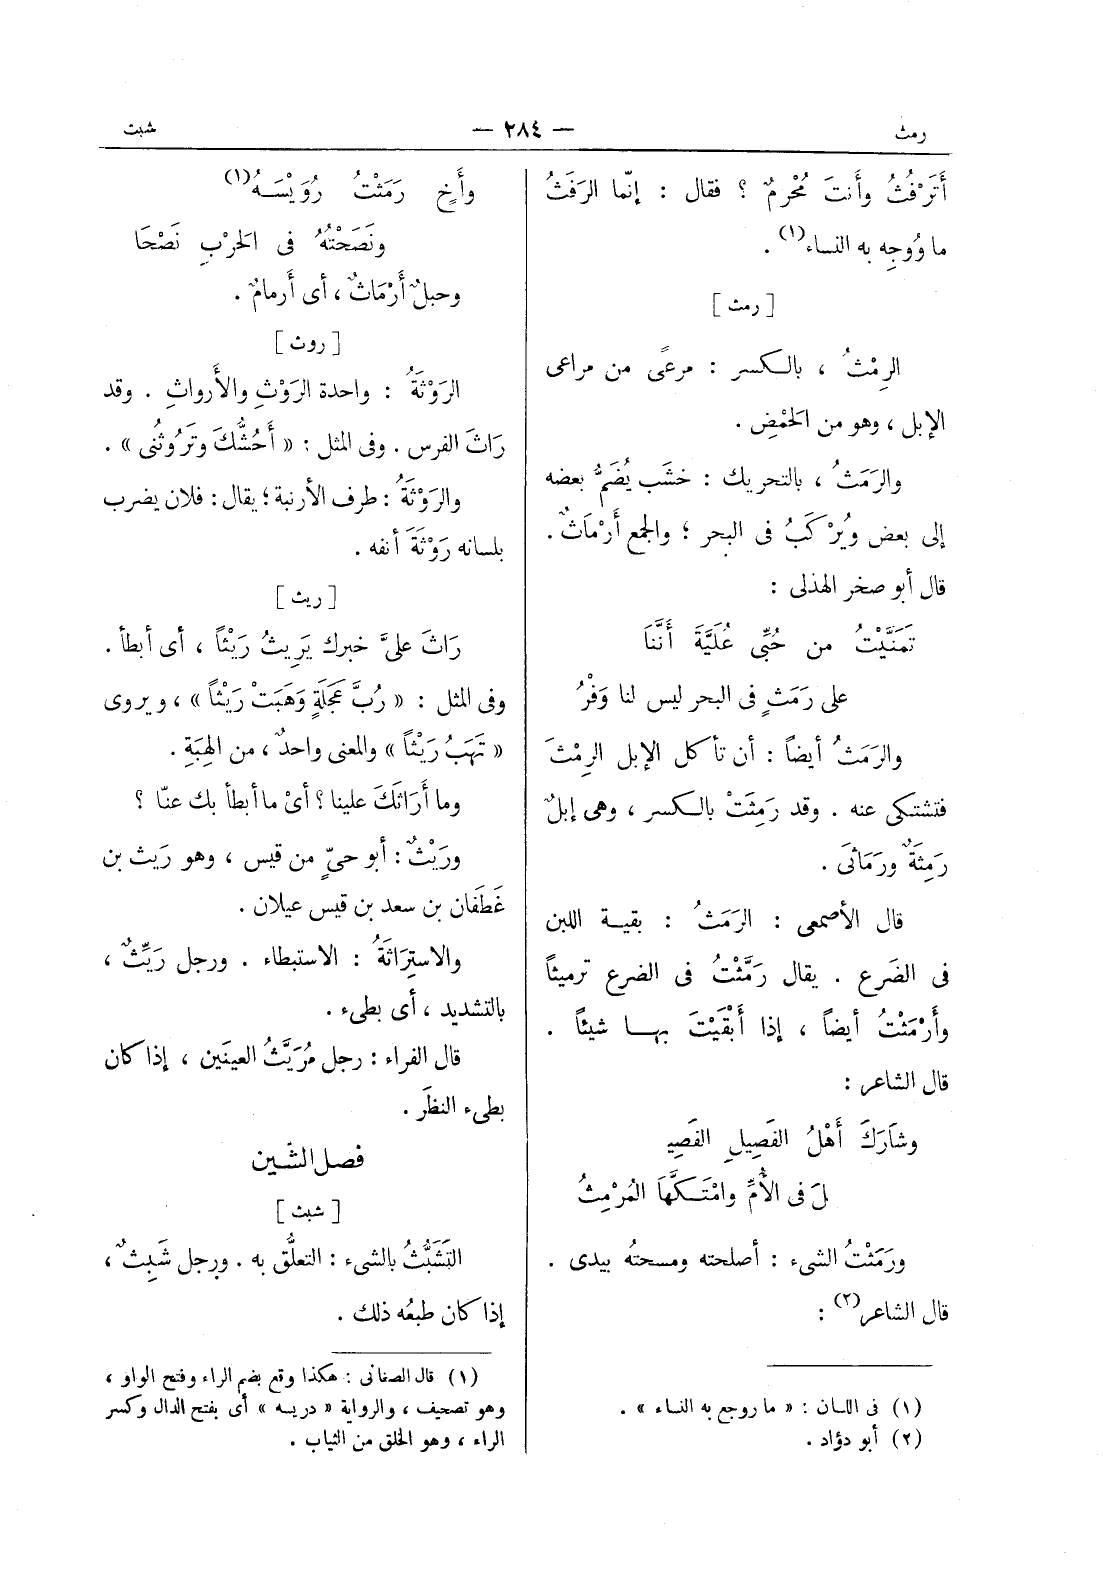 رمث
— ٢٨٤ —
شبث
أَتَرْفُثُ وأَنتَ مُحْرِمٌ ؟ فقال : إنّما الرَفَثُ
ما وُوجِه به النساء(١) .
[ رمث ]
الرِمْثُ ، بالكسر : مرعًى من مراعى
الإبل ، وهو من الحَمْضِ .
والرَمَثُ ، بالتحريك : خشَب يُضَمُّ بعضه
إلى بعض ويُرْكَبُ فى البحر ؛ والجمع أَرْمَاثٌ .
قال أبو صخر الهذلى :
تَمَنَّيْتُ من حُبِّى عُلَيَّةَ أَنَّنَا
على رَمَثٍ فى البحر ليس لنا وَفْرُ
والرَمَثُ أيضاً : أن تأكل الإبل الرِمْثَ
فتشتكى عنه . وقد رَمِثَتْ بالكسر ، وهى إبلٌ
رَمِثَةٌ ورَمَاثَى .
قال الأصمعى : الرَمَثُ : بقية اللبن
فى الضَرع . يقال رَمَّثْتُ فى الضرع ترميثاً
وأَرْمَثْتُ أيضاً ، إذا أَبْقَيْتَ بها شيئاً .
قال الشاعر :
وشَارَكَ أَهْلُ الفَصِيلِ الفَصِيـ
لَ فى الأُمِّ وامْتَكَّهَا المُرْمِثُ
ورَمَثْتُ الشىء : أصلحته ومسحتُه بيدى .
قال الشاعر(٢) :
(١) فى اللسان : « ما روجع به النساء » .
(٢) أبو دؤاد .
وأَخٍ رَمَثْتُ رُوَيْسَهُ(١)
ونَصَحْتُهُ فى الحَرْبِ نَصْحَا
وحبلٌ أَرْمَاثٌ ، أى أَرمامٌ .
[ روث ]
الرَوْثَةُ : واحدة الرَوْثِ والأَرواثِ . وقد
رَاثَ الفرس . وفى المثل : « أَحُشُّكَ وتَرُوثُنى » .
والرَوْثَةُ : طرف الأرنبة ؛ يقال : فلان يضرب
بلسانه رَوْثَةَ أنفه .
[ ريث ]
رَاثَ علىَّ خبرك يَرِيثُ رَيْثاً ، أى أبطأ .
وفى المثل : « رُبَّ عَجَلَةٍ وَهَبَتْ رَيْثاً » ، ويروى
« تَهَبُ رَيْثاً » والمعنى واحدٌ ، من الهِبَةِ .
وما أَرَاثَكَ علينا ؟ أىْ ما أبطأ بك عنّا ؟
ورَيْثٌ : أبو حىٍّ من قيس ، وهو رَيث بن
غَطَفان بن سعد بن قيس عيلان .
والاسترَاثَةُ : الاستبطاء . ورجل رَيِّثٌ ،
بالتشديد ، أى بطىء .
قال الفراء : رجل مُرَيَّثُ العينَين ، إذا كان
بطىء النظَر .
فصل الشّين
[ شبث ]
التَشَبُّثُ بالشىء : التعلُّق به . ورجل شَبِثٌ ،
إذا كان طبعُه ذلك .
(١) قال الصغانى : هكذا وقع بضم الراء وفتح الواو ،
وهو تصحيف ، والرواية « دريسه » أى بفتح الدال وكسر
الراء ، وهو الخلق من الثياب .